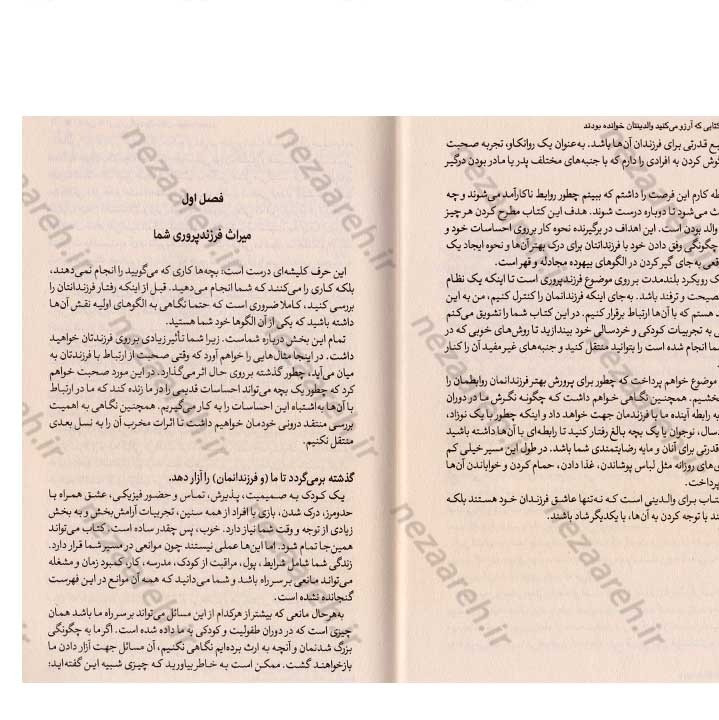 کتابی که آرزو می‌کنید والدینتان خوانده بودند
بع قدرتی برای فرزندان آن‌ها باشد. به‌عنوان یک روانکاو، تجربه صحبت
گوش کردن به افرادی را دارم که با جنبه‌های مختلف پدر یا مادر بودن درگیر
طه کارم این فرصت را داشتم که ببینم چطور روابط ناکارآمد می‌شوند و چه
ث می‌شود تا دوباره درست شوند. هدف این کتاب مطرح کردن هر چیز
والد بودن است. این اهداف در برگیرنده نحوه کار بر روی احساسات خود و
چگونگی وفق دادن خود با فرزندانتان برای درک بهتر آن‌ها و نحوه ایجاد یک
قعی به‌جای گیر کردن در الگوهای بیهوده مجادله و قهر است.
ک رویکرد بلندمدت بر روی موضوع فرزندپروری است تا اینکه یک نظام
صیحت و ترفند باشد. به‌جای اینکه فرزندانمان را کنترل کنیم، من به این
د هستم که با آن‌ها ارتباط برقرار کنیم. در این کتاب شما را تشویق می‌کنم
ی به تجربیات کودکی و خردسالی خود بیندازید تا روش‌های خوبی که در
ما انجام شده است را بتوانید منتقل کنید و جنبه‌های غیرمفید آن را کنار
موضوع خواهم پرداخت که چطور برای پرورش بهتر فرزندانمان روابطمان را
خشیم. همچنین نگاهی خواهم داشت که چگونه نگرش ما در دوران
به رابطه آینده ما با فرزندمان جهت خواهد داد و اینکه چطور با یک نوزاد،
دسال، نوجوان یا یک بچه بالغ رفتار کنید تا رابطه‌ای با آن‌ها داشته باشید
قدرتی برای آنان و مایه رضایتمندی شما باشد. در طول این مسیر خیلی کم
ی‌های روزانه مثل لباس پوشاندن، غذا دادن، حمام کردن و خواباندن آن‌ها
پرداخت.
کتاب برای والدینی است که نه‌تنها عاشق فرزندان خود هستند بلکه
ند با توجه کردن به آن‌ها، با یکدیگر شاد باشند.
فصل اول
میراث فرزندپروری شما
این حرف کلیشه‌ای درست است، بچه‌ها کاری که می‌گویید را انجام نمی‌دهند،
بلکه کاری را می‌کنند که شما انجام می‌دهید. قبل از اینکه رفتار فرزندانتان را
بررسی کنید، کاملا ضروری است که حتما نگاهی به الگوهای اولیه نقش آن‌ها
داشته باشید که یکی از آن الگوها خود شما هستید.
تمام این بخش درباره شماست. زیرا شما تأثیر زیادی بر روی فرزندتان خواهید
داشت. در اینجا مثال‌هایی را خواهم آورد که وقتی صحبت از ارتباط با فرزندتان به
میان می‌آید، چطور گذشته بر روی حال اثر می‌گذارد. در این مورد صحبت خواهم
کرد که چطور یک بچه می‌تواند احساسات قدیمی را در ما زنده کند که ما در ارتباط
با آن‌ها به‌اشتباه این احساسات را به کار می‌گیریم. همچنین نگاهی به اهمیت
بررسی منتقد درونی خودمان خواهیم داشت تا اثرات مخرب آن را به نسل بعدی
منتقل نکنیم.
گذشته برمی‌گردد تا ما (و فرزندانمان) را آزار دهد.
یک کودک به صمیمیت، پذیرش، تماس و حضور فیزیکی، عشق همراه با
حدومرز، درک شدن، بازی با افراد از همه سنین، تجربیات آرامش‌بخش و به بخش
زیادی از توجه و وقت شما نیاز دارد. خوب، پس چقدر ساده است. کتاب می‌تواند
همین‌جا تمام شود. اما این‌ها عملی نیستند چون موانعی در مسیر شما قرار دارد.
زندگی شما شامل شرایط، پول، مراقبت از کودک، مدرسه، کار، کمبود زمان و مشغله
می‌تواند مانعی بر سر راه باشد و شما می‌دانید که همه آن موانع در این فهرست
گنجانده نشده است.
به‌هرحال مانعی که بیشتر از هرکدام از این مسائل می‌تواند بر سر راه ما باشد همان
چیزی است که در دوران طفولیت و کودکی به ما داده شده است. اگر ما به چگونگی
بزرگ شدنمان و آنچه به ارث برده‌ایم نگاهی نکنیم، آن مسائل جهت آزار دادن ما
بازخواهند گشت. ممکن است به خاطر بیاورید که چیزی شبیه این گفته‌اید:
nezaareh.ir
nezaareh.ir
nezaareh.ir
nezaareh.ir
nezaareh.ir
nezaareh.ir